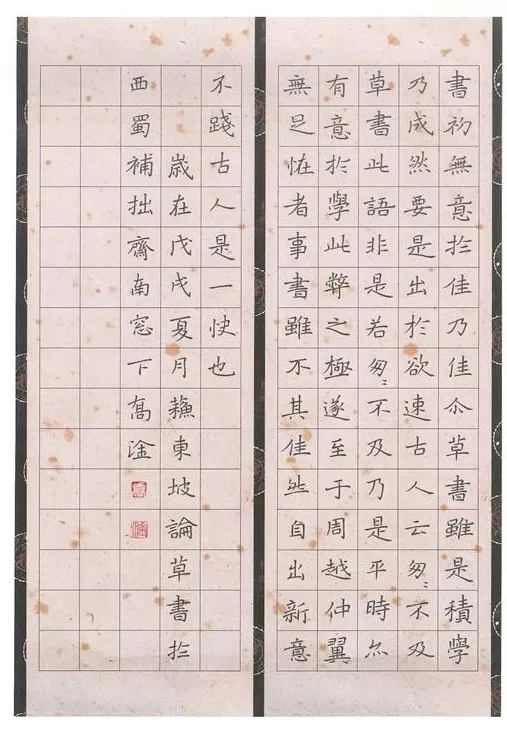 書初無意扵佳乃佳尒草書雖是積學
乃成然要是出扵欲速古人云匆〻不及
草書此語非是若匆〻不及乃是平時亦
有意扵學此弊之極遂至于周越仲翼
無足恠者事書雖不其佳然自出新意
不踐古人是一快也
歲在戊戌夏月蘇東坡論草書扵
西蜀補拙齋南窓下高淦